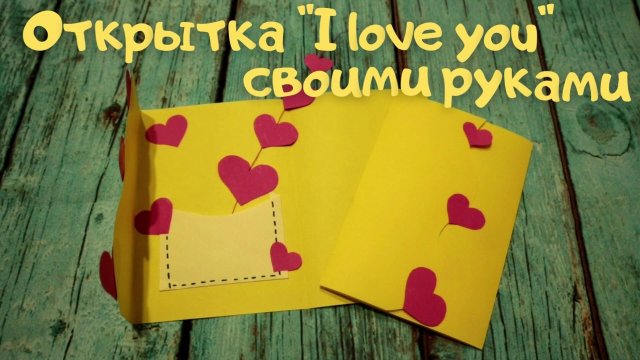 Открытка "I love you"
своими руками